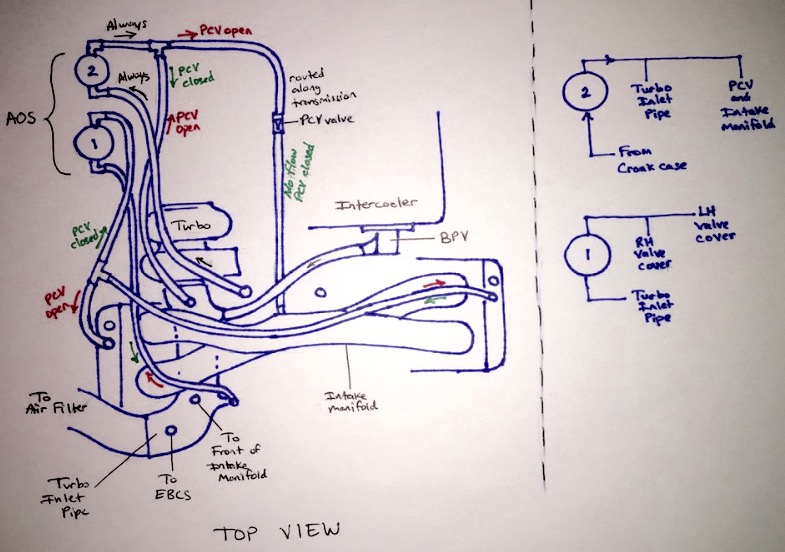 Always
PCV open
2
Always
PCV
closed
routed
along
transmission
AOS
PCV
open
PCV valve
1
No flow
PCV closed
Turbo
Intercooler
PCV
closed
BPV
PCV
open
To
Air Filter
Intake
manifold
To
Front of
Intake
Manifold
To
EBCS
Turbo
Inlet
Pipe
TOP VIEW
2
Turbo
Inlet
Pipe
PCV
and
Intake
Manifold
From
Crank case
1
RH
valve
cover
LH
valve
cover
Turbo
Inlet
Pipe